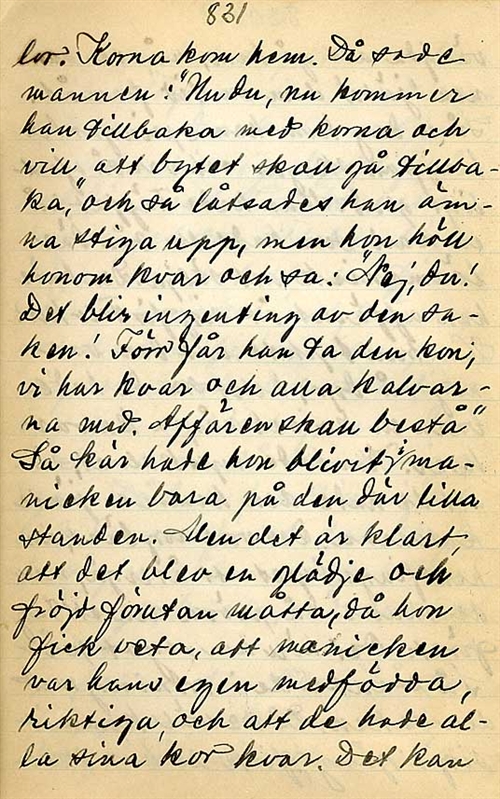 831
lor. Korna kom hem. Då sade
mannen: "Nu du, nu kommer
han tillbaka med korna och
vill, att bytet skall gå tillba-
ka," och så låtsades han äm-
na stiga upp, men hon höll
honom kvar och sa: "Nej, du!
Det blir ingenting av den sa-
ken! Förr får han ta den kon,
vi har kvar och alla kalvar-
na med. Affären skall bestå"
Så kär hade hon blivit i ma-
nicken bara på den där lilla
stunden. Men det är klart,
att det blev en glädje och
fröjd förutan måtta, då hon
fick veta, att manicken
var hans egen medfödda,
riktiga, och att de hade al-
la sina kor kvar. Det kan